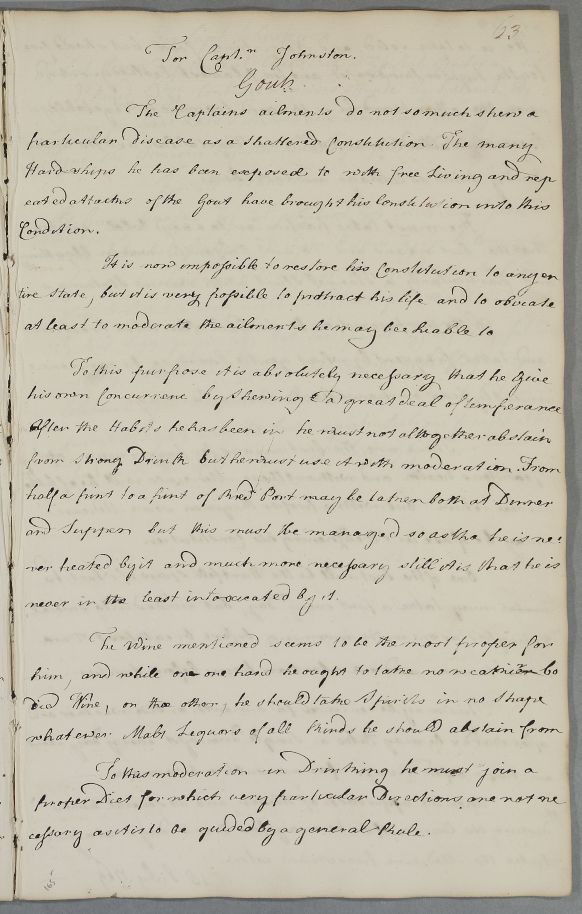 63
For Capt.n Johnston.
Gout
The Captains ailments do not so much shew a
particular disease as a shattered Constitution. The many
Hard-ships he has been exposed to with free Living and rep
eated attacks of the Gout have brought his Constitution into this
Condition.
It is now impossible to restore his Constitution to any en
tire state, but it is very possible to protract his life and to obviate
at least to moderate the ailments he may bee liable to
To this purpose it is absolutely necessary that he give
his own Concurrence by shewing a great deal of temperance
After the Habits he has been in he must not altogether abstain
from Strong Drink but he must use it with moderation. From
half a pint to a pint of Red Port may be taken both at Dinner
and Supper but this must be managed so as tha he is ne
ver heated by it and much more necessary still it is that he is
never in the least intoxicated by it.
The Wine mentioned seems to be the most proper for
him, and while one one hand he ought to take no weaker bo
died Wine, on the other, he should take Spirits in no shape
whatever Malt Lequors of all kinds he should abstain from
To this moderation in Drinking he must join a
proper Diet for which very particular Directions are not ne
cessary as it is to be guided by a general Rule.
165